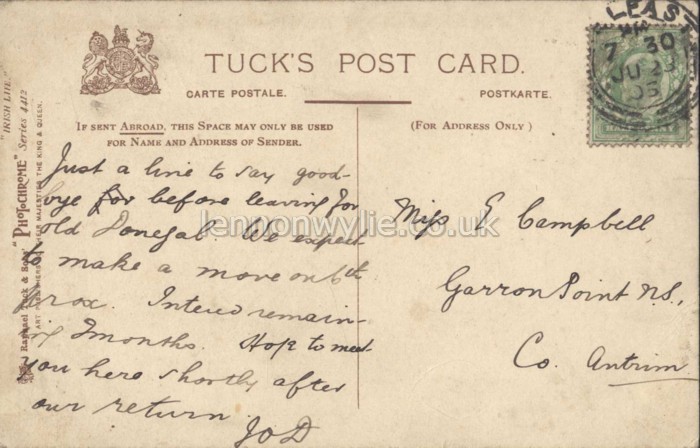 TUCK'S POST CARD.
CARTE POSTALE. POSTKARTE.
IF SENT ABROAD, THIS SPACE MAY ONLY BE USED
FOR NAME AND ADDRESS OF SENDER.
(FOR ADDRESS ONLY)
Just a line to say good-
bye for before leaving for
old Donegal. We expect
to make a move on 6th
prox. Intend remain-
ing 2 months. Hope to meet
you here shortly after
our return
JOD
Miss E Campbell
Garron Point N.S.,
Co. Antrim
lennonwylie.co.uk
LFAST
7 30
JU 23
05
"IRISH LIFE."
"PHOTOCHROME" Series 4412
Raphael Tuck & Sons
ART PUBLISHERS TO THEIR MAJESTIES THE KING & QUEEN.